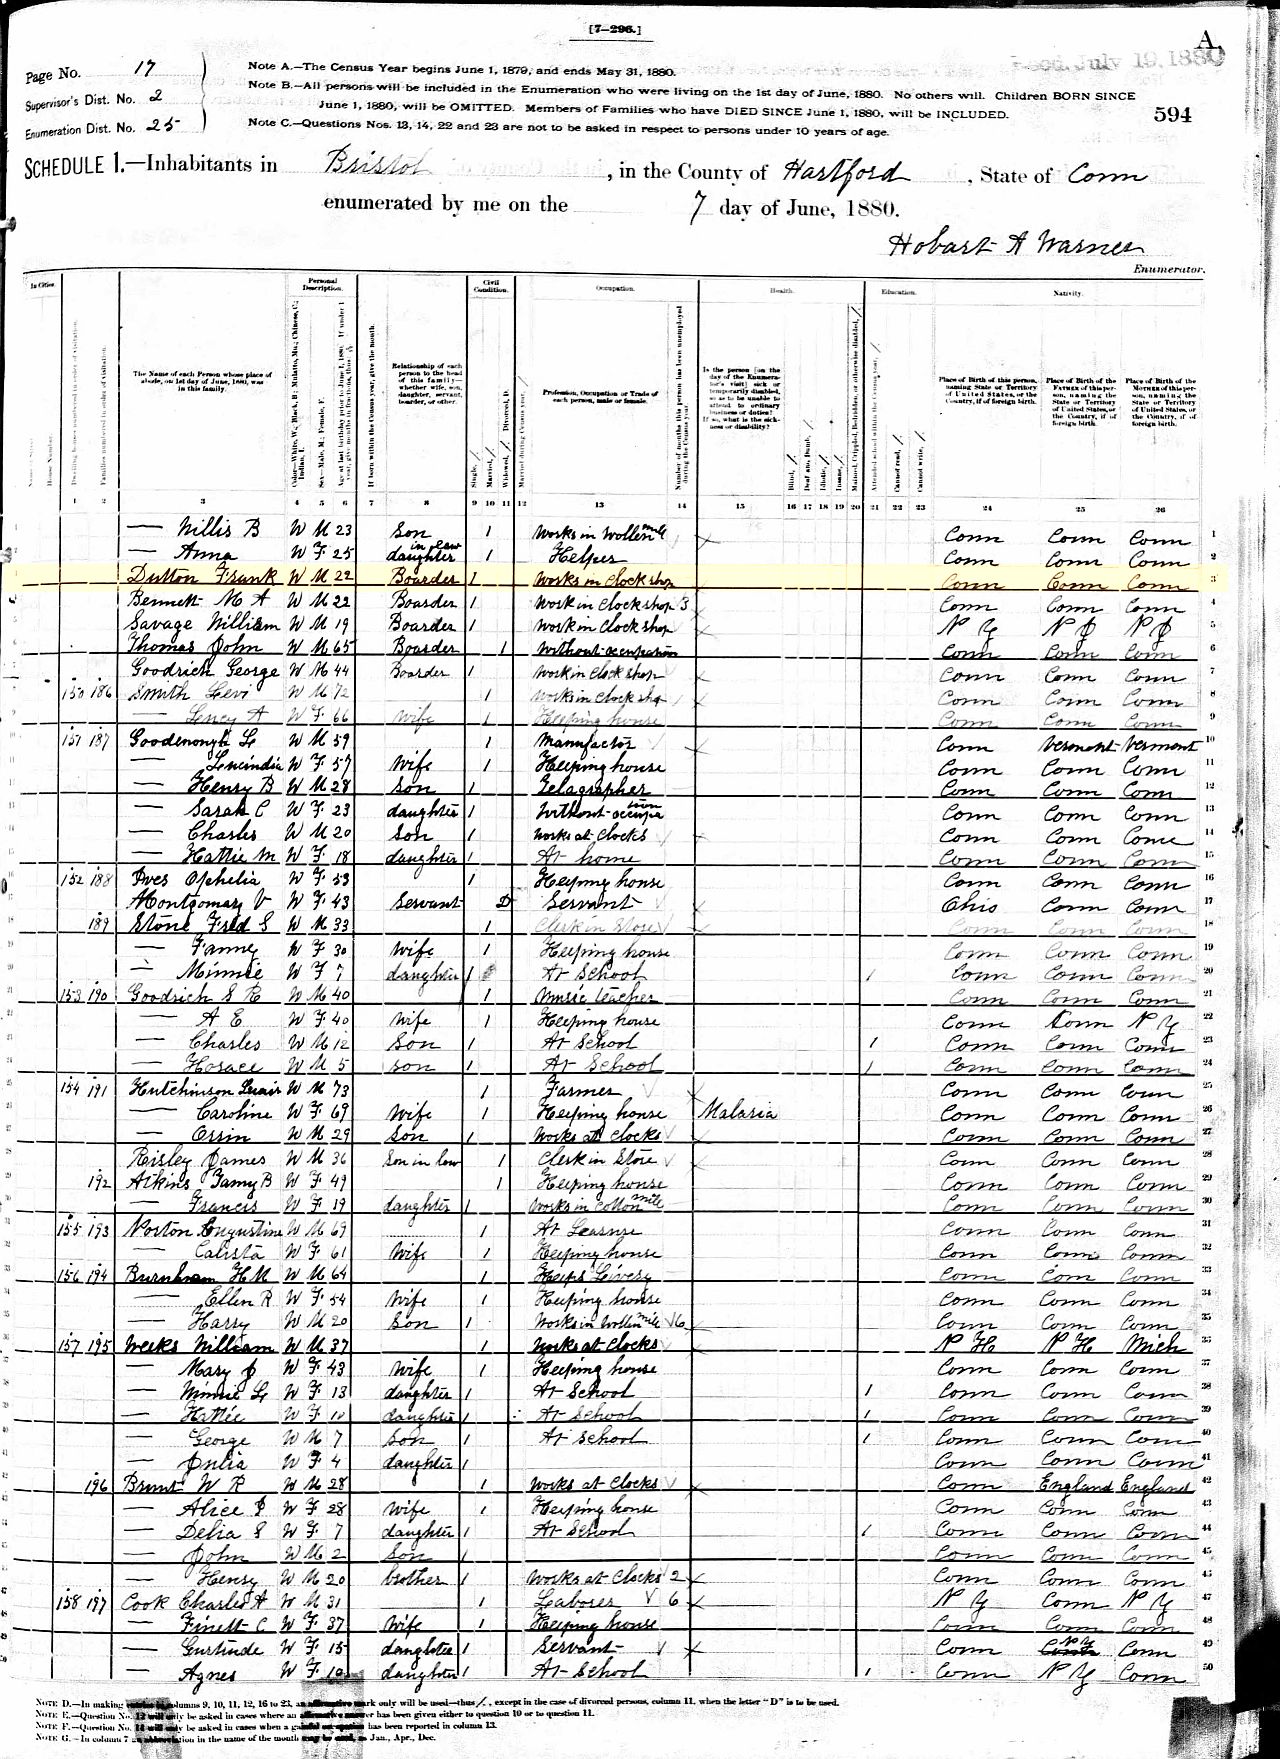 [7-296.]
A.
Page No. 17
Note A.—The Census Year begins June 1, 1879, and ends May 31, 1880.
July 19, 1880
Supervisor's Dist. No. 2
Note B.—All persons will be included in the Enumeration who were living on the 1st day of June, 1880. No others will. Children BORN SINCE
June 1, 1880, will be OMITTED. Members of Families who have DIED SINCE June 1, 1880, will be INCLUDED.
594
Enumeration Dist. No. 25
Note C.—Questions Nos. 13, 14, 22 and 23 are not to be asked in respect to persons under 10 years of age.
SCHEDULE 1.—Inhabitants in Bristol, in the County of Hartford, State of Conn
enumerated by me on the 7 day of June, 1880.
Hobart A Warner
Enumerator.
In Cities. Personal Description. Civil Condition. Occupation. Health. Education. Nativity.
The Name of each Person whose place of abode, on 1st day of June, 1880, was in this family.
Relationship of each person to the head of this family—whether wife, son, daughter, servant, boarder, or other.
Profession, Occupation or Trade of each person, male or female.
Place of Birth of this person, naming State or Territory of United States, or the Country, if of foreign birth.
Place of Birth of the FATHER of this person, naming the State or Territory of United States, or the Country, if of foreign birth.
Place of Birth of the MOTHER of this person, naming the State or Territory of United States, or the Country, if of foreign birth.
1 2 3 4 5 6 7 8 9 10 11 12 13 14 15 16 17 18 19 20 21 22 23 24 25 26
— Willis B W M 23 Son 1 Works in Wollen mill Conn Conn Conn 1
— Anna W F 25 daughter in law 1 Helper Conn Conn Conn 2
Dutton Frank W M 22 Boarder 1 Works in Clock shop Conn Conn Conn 3
Bennett M A W M 22 Boarder 1 Work in Clock shop 3 Conn Conn Conn 4
Savage William W M 19 Boarder 1 Work in Clock shop N Y N J N J 5
Thomas John W M 65 Boarder 1 Without occupation Conn Conn Conn 6
Goodrich George W M 44 Boarder 1 Work in Clock shop Conn Conn Conn 7
150 186 Smith Levi W M 72 1 Works in Clock shop Conn Conn Conn 8
— Lency A W F 66 Wife 1 Keeping house Conn Conn Conn 9
151 187 Goodenough L W M 59 1 Manufactor Conn Vermont Vermont 10
— Lucindia W F 57 Wife 1 Keeping house Conn Conn Conn 11
— Henry B W M 28 Son 1 Telagrapher Conn Conn Conn 12
— Sarah C W F 23 daughter 1 Without occupation Conn Conn Conn 13
— Charles W M 20 Son 1 Works at Clocks Conn Conn Conn 14
— Hattie M W F 18 daughter 1 At home Conn Conn Conn 15
152 188 Ives Ophelia W F 53 1 Keeping house Conn Conn Conn 16
Montgomary V W F 43 Servant D Servant Ohio Conn Conn 17
189 Stone Fred S W M 33 1 Clerk in Store Conn Conn Conn 18
— Fanney W F 30 Wife 1 Keeping house Conn Conn Conn 19
— Minnie W F 7 daughter 1 At School 1 Conn Conn Conn 20
153 190 Goodrich S R W M 40 1 Music teacher Conn Conn Conn 21
— A E W F 40 Wife 1 Keeping house Conn Conn N Y 22
— Charles W M 12 Son 1 At School 1 Conn Conn Conn 23
— Horace W M 5 Son 1 At School 1 Conn Conn Conn 24
154 191 Hutchinson W M 73 1 Farmer Conn Conn Conn 25
— Caroline W F 69 Wife 1 Keeping house Malaria Conn Conn Conn 26
— Orrin W M 29 Son 1 Works at Clocks Conn Conn Conn 27
Risley James W M 36 Son in law 1 Clerk in Store Conn Conn Conn 28
192 Atkins Famy B W F 49 1 Keeping house Conn Conn Conn 29
— Francis W F 19 daughter 1 Works in Cotton mill Conn Conn Conn 30
155 193 Norton Augustine W M 69 1 At Leasure Conn Conn Conn 31
— Calista W F 61 Wife 1 Keeping house Conn Conn Conn 32
156 194 Burnham H M W M 64 1 Keeps Livery Conn Conn Conn 33
— Ellen R W F 54 Wife 1 Keeping house Conn Conn Conn 34
— Harry W M 20 Son 1 Works in Wollen mill 6 Conn Conn Conn 35
157 195 Weeks William W M 37 1 Works at Clocks N H N H Mich 36
— Mary J W F 43 Wife 1 Keeping house Conn Conn Conn 37
— Minnie L W F 13 daughter 1 At School 1 Conn Conn Conn 38
— Hattie W F 10 daughter 1 At School 1 Conn Conn Conn 39
— George W M 7 Son 1 At School 1 Conn Conn Conn 40
— Julia W F 4 daughter 1 Conn Conn Conn 41
196 Brunt W R W M 28 1 Works at Clocks Conn England England 42
— Alice J W F 28 Wife 1 Keeping house Conn Conn Conn 43
— Delia S W F 7 daughter 1 At School 1 Conn Conn Conn 44
— John W M 2 Son 1 Conn Conn Conn 45
— Henry W M 20 brother 1 Works at Clocks 2 Conn Conn Conn 46
158 197 Cook Charles A W M 31 1 Laborer 6 N Y Conn N Y 47
— Finett C W F 37 Wife 1 Keeping house Conn Conn Conn 48
— Gurtrude W F 15 daughter 1 Servant Conn N Y Conn 49
— Agnes W F 10 daughter 1 At School 1 Conn N Y Conn 50
NOTE D.—In making entries in columns 9, 10, 11, 12, 16 to 23, an affirmative mark only will be used—thus /, except in the case of divorced persons, column 11, when the letter "D" is to be used.
NOTE E.—Question No. 12 will only be asked in cases where an affirmative answer has been given either to question 10 or to question 11.
NOTE F.—Question No. 14 will only be asked in cases when a gainful occupation has been reported in column 13.
NOTE G.—In column 7 an abbreviation in the name of the month may be used, as Jan., Apr., Dec.